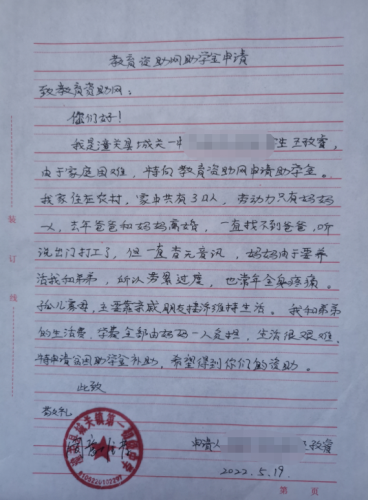 教育资助网助学金申请
致教育资助网:
你们好!
我是潼关县城关一中 生王政睿
由于家庭困难,特向教育资助网申请助学金。
我家住在农村,家中共有3口人,劳动力只有妈妈
一人,去年爸爸和妈妈离婚,一直找不到爸爸,听
说出门打工了,但一直杳无音讯,妈妈由于要养
活我和弟弟,所以劳累过度,也常年全身疼痛。
孤儿寡母,主要靠亲戚朋友接济维持生活。我和弟弟
的生活费、学费全部由妈妈一人负担,生活很艰难,
特申请贫困助学金补助,希望得到你们的资助。
此致
敬礼
申请人 王政睿
2022.5.19.
装订线
第 页